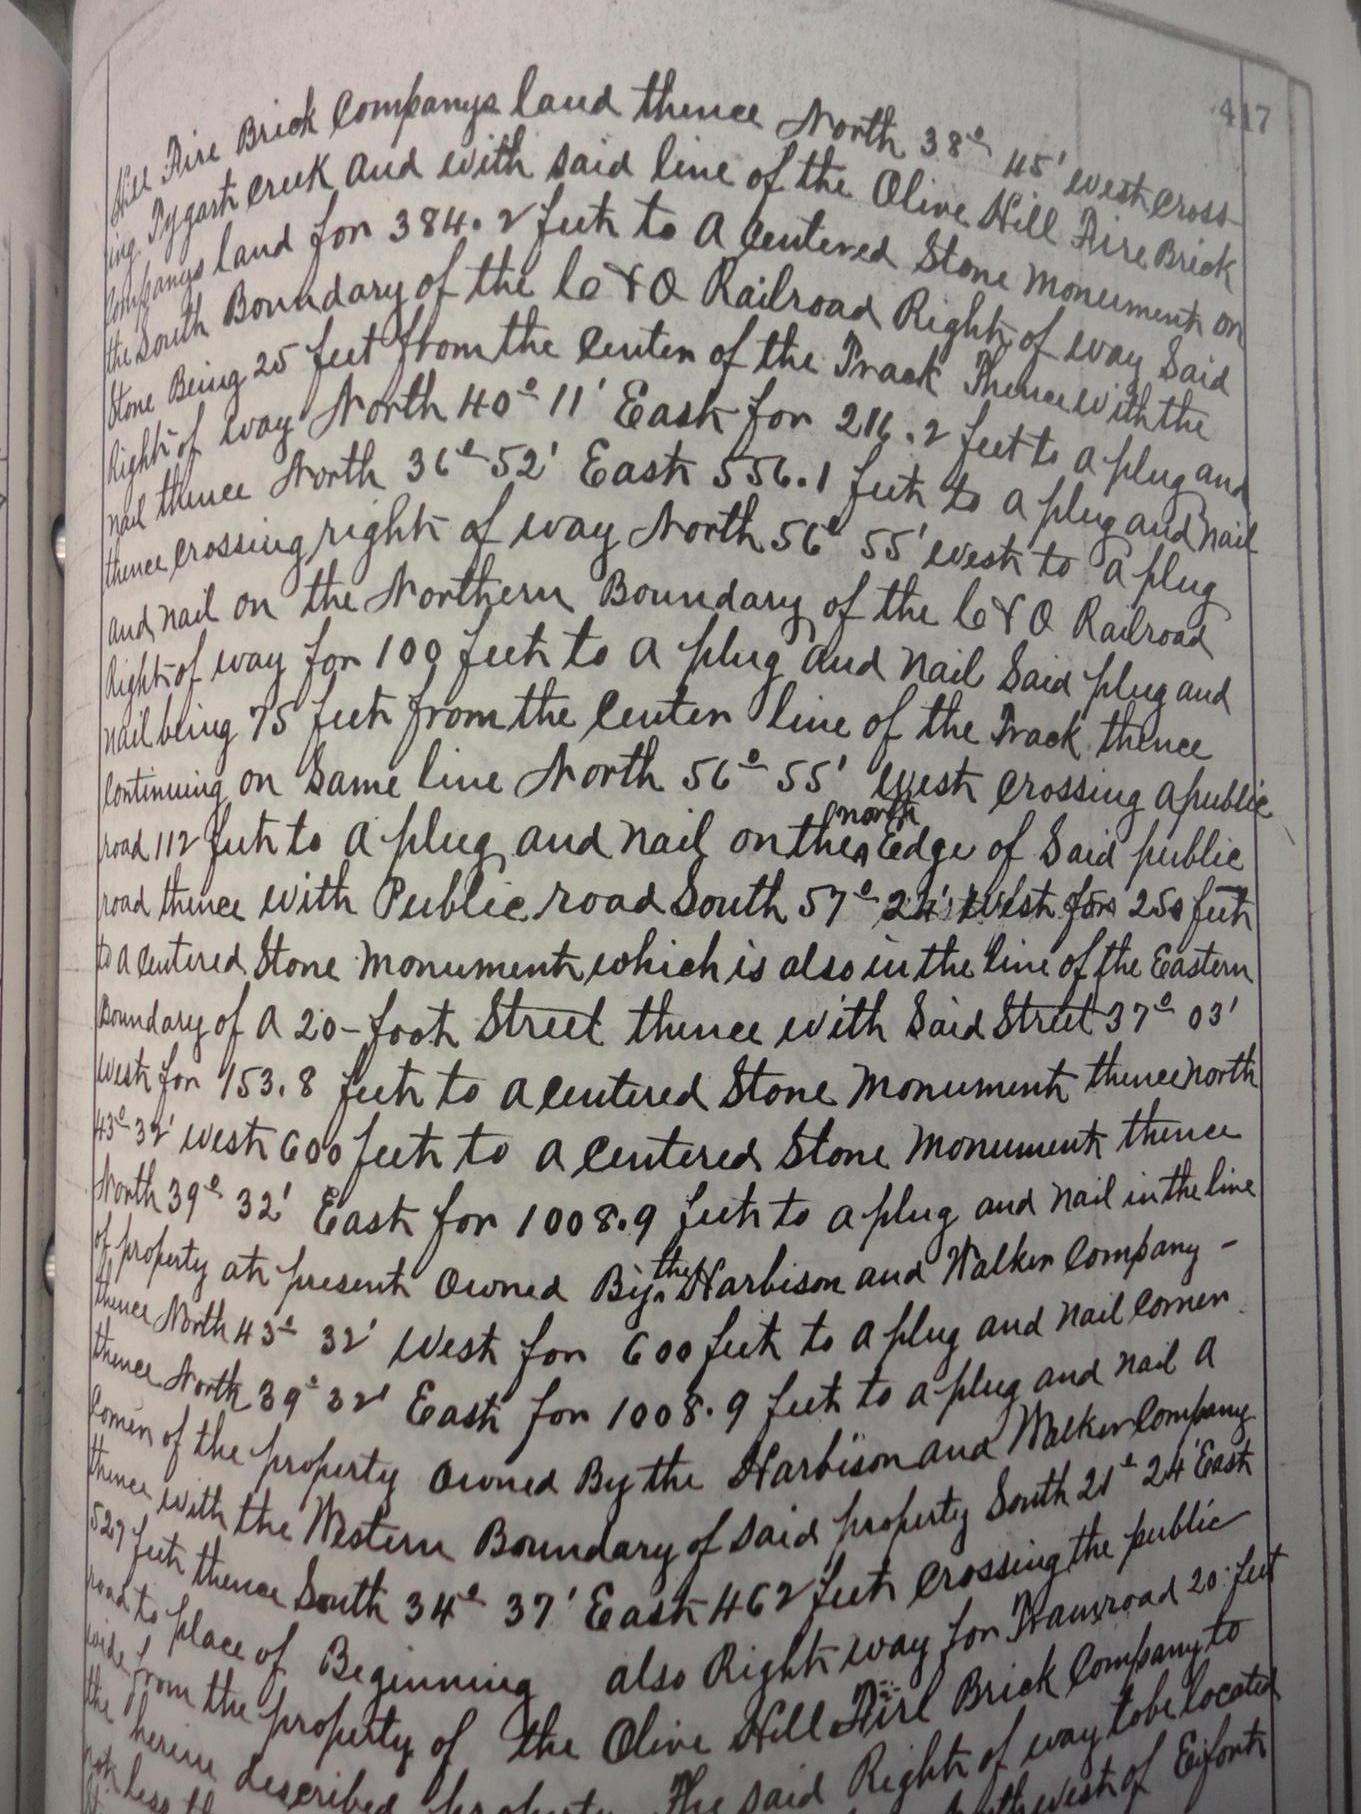 417
Hill Fire Brick Companys land thence North 38° 45' west cross-
ing Tygart Creek and with said line of the Olive Hill Fire Brick
Companys land for 384.2 feet to a centered Stone monument on
the South Boundary of the C & O Railroad Right of way Said
Stone Being 25 feet from the center of the Track Thence with the
Right of way North 40° 11' East for 216.2 feet to a plug and
nail thence North 36° 52' East 556.1 feet to a plug and nail
thence crossing right of way North 56° 55' west to a plug
and nail on the Northern Boundary of the C & O Railroad
Right of way for 100 feet to a plug and nail Said plug and
nail being 75 feet from the center line of the Track thence
continuing on same line North 56° 55' west crossing a public
road 112 feet to a plug and nail on the north Edge of Said public
road thence with Public road South 57° 24' West for 250 feet
to a centered Stone monument which is also in the line of the Eastern
Boundary of a 20-foot Street thence with Said Street 37° 03'
west for 153.8 feet to a centered Stone monument thence north
43° 32' west 600 feet to a centered Stone monument thence
North 39° 32' East for 1008.9 feet to a plug and nail in the line
of property at present owned By the Harbison and Walker Company -
thence North 43° 32' West for 600 feet to a plug and nail corner
thence North 39° 32' East for 1008.9 feet to a plug and nail a
corner of the property owned By the Harbison and Walker Company
thence with the Western Boundary of said property South 21° 24' East
527 feet thence South 34° 37' East 462 feet crossing the public
road to place of Beginning also Right way for Tramroad 20 feet
wide from the property of the Olive Hill Fire Brick Company to
the herein described property The said Right of way to be located
not less west of